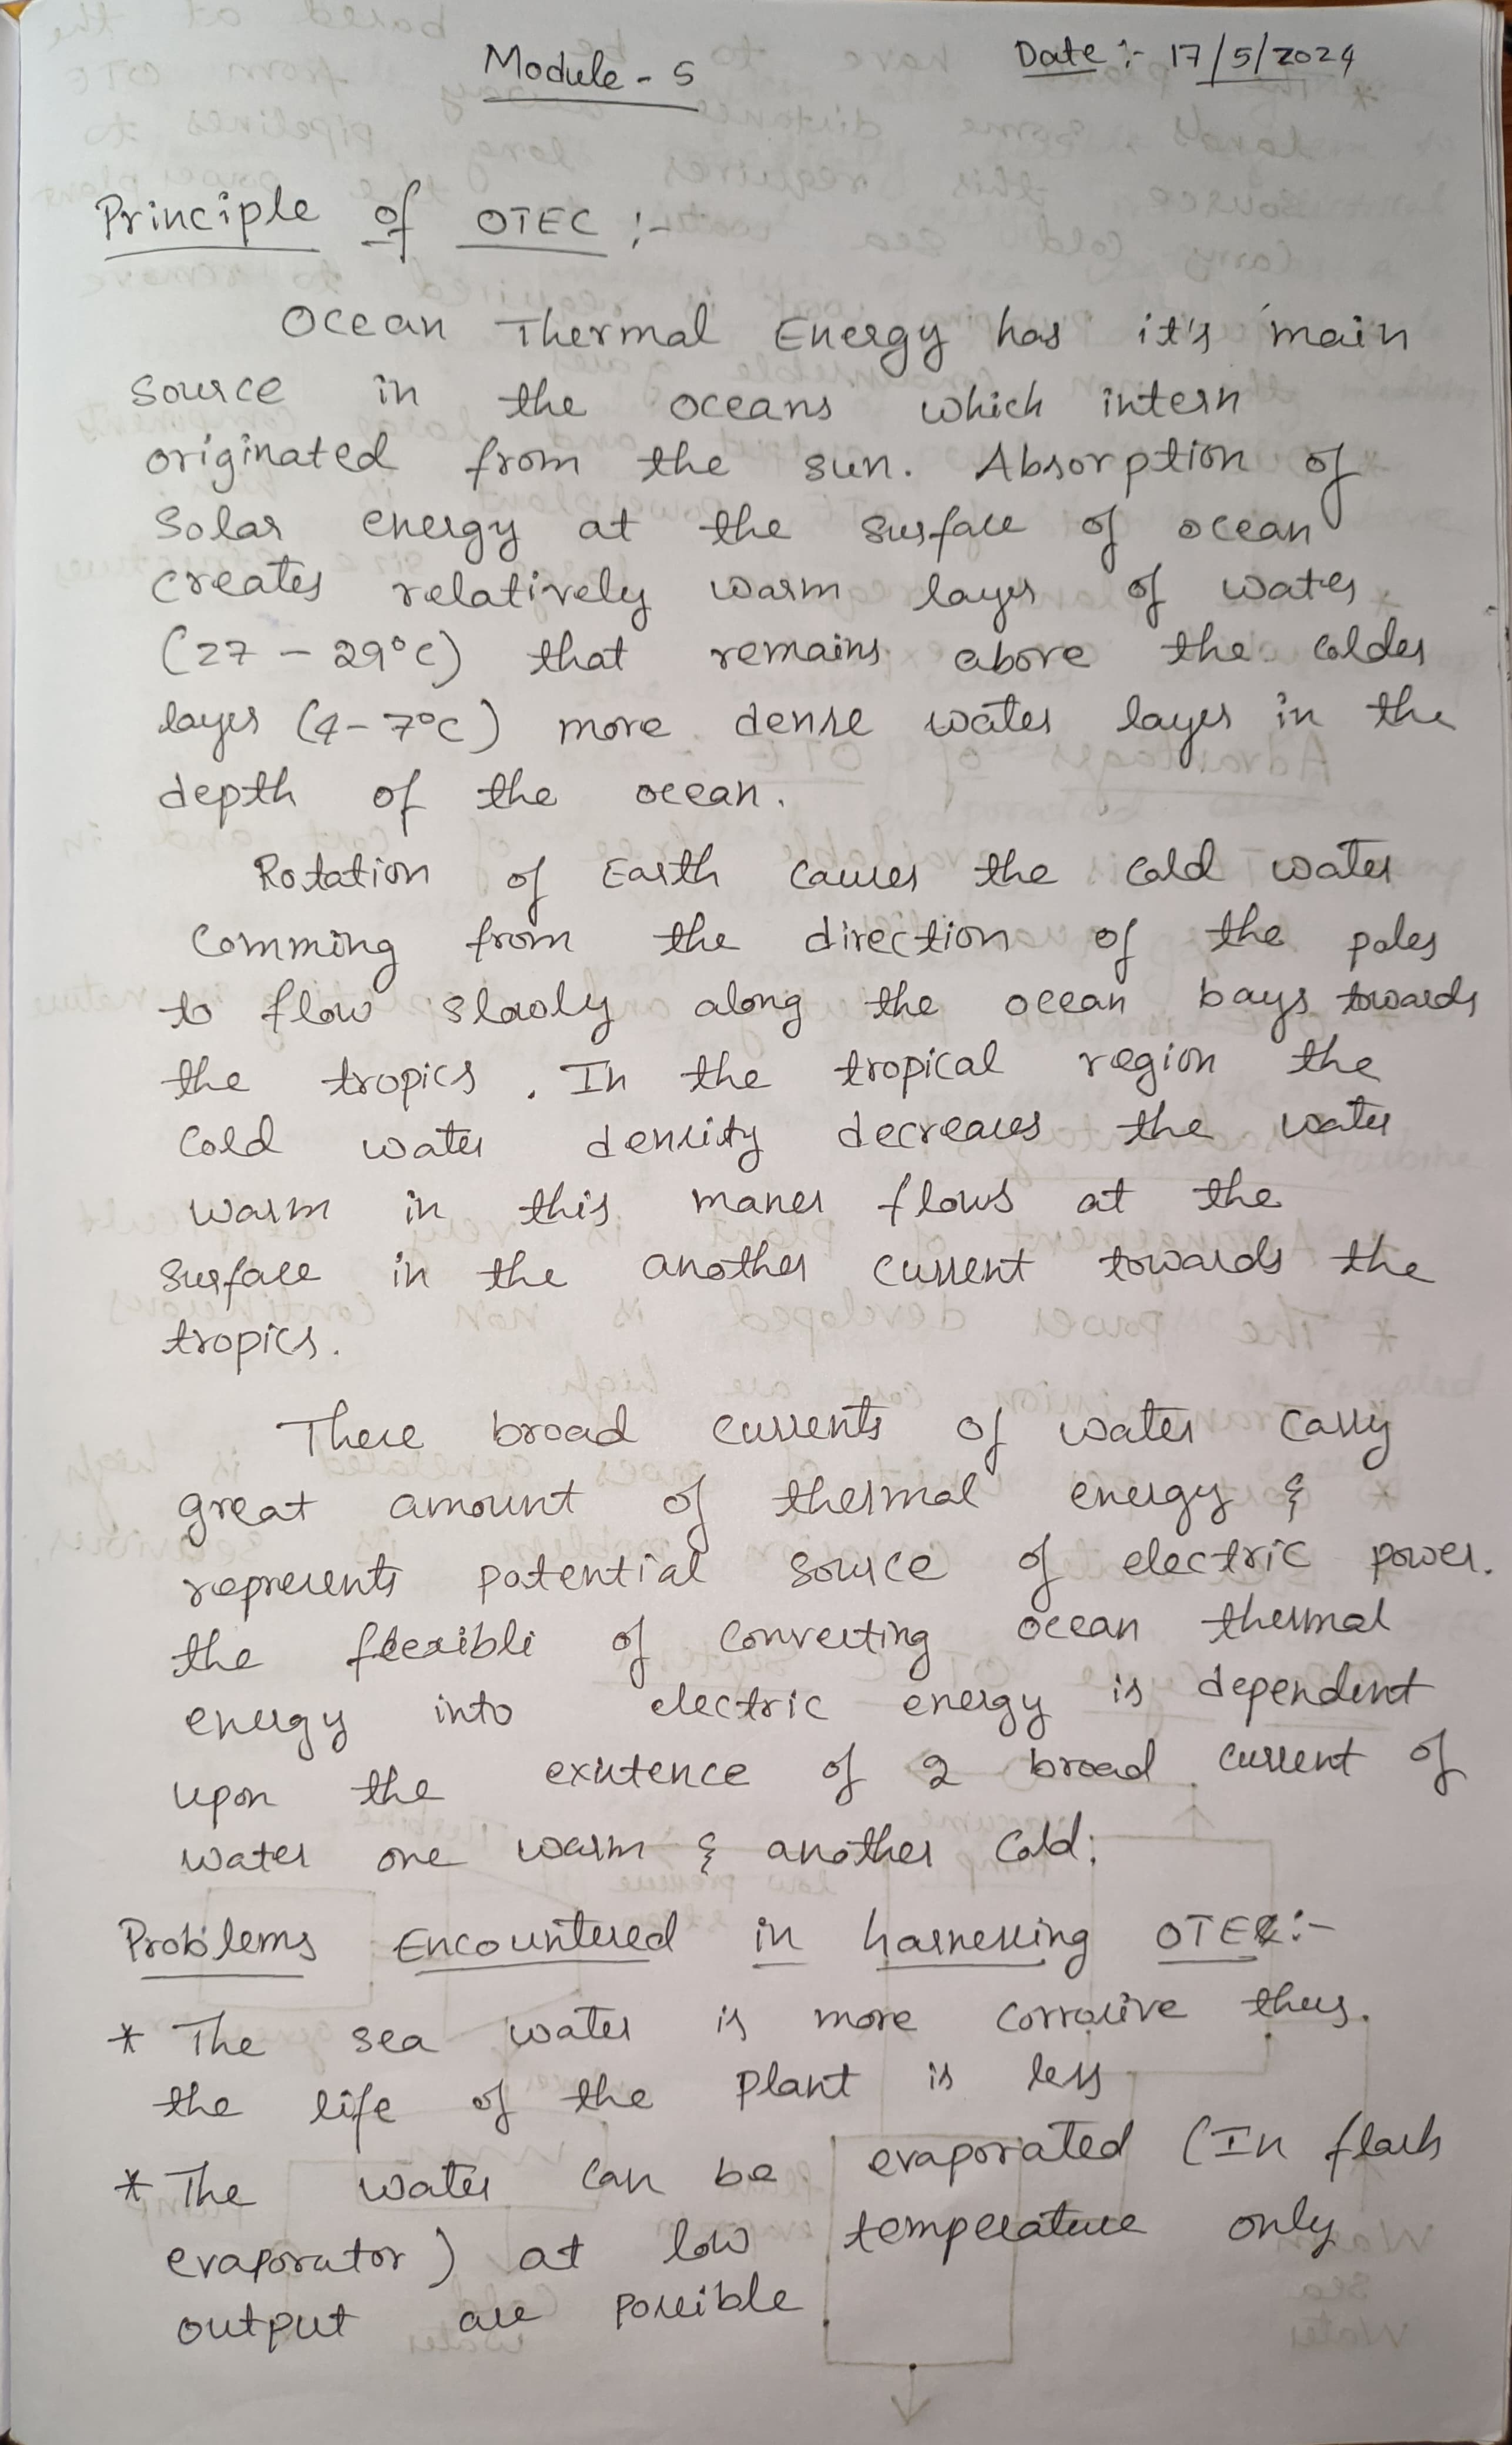 Module - 5
Date :- 17/5/2024
Principle of OTEC :-
Ocean Thermal Energy has it's main
source in the oceans which intern
originated from the sun. Absorption of
solar energy at the surface of ocean
creates relatively warm layer of water
(27 - 29°C) that remains above the colder
layer (4-7°C) more dense water layer in the
depth of the ocean.
Rotation of Earth causes the cold water
comming from the direction of the poles
to flow slowly along the ocean bays towards
the tropics. In the tropical region the
cold water density decreases the water
warm in this maner flows at the
surface in the another current towards the
tropics.
These broad currents of water carry
great amount of thermal energy &
represents potential source of electric power.
the flexible of converting ocean thermal
energy into electric energy is dependent
upon the existence of 2 broad current of
water one warm & another cold.
Problems Encountered in harnessing OTEC:-
* The sea water is more corrosive thus.
the life of the plant is less
* The water can be evaporated (In flash
evaporator) at low temperature only
output are possible